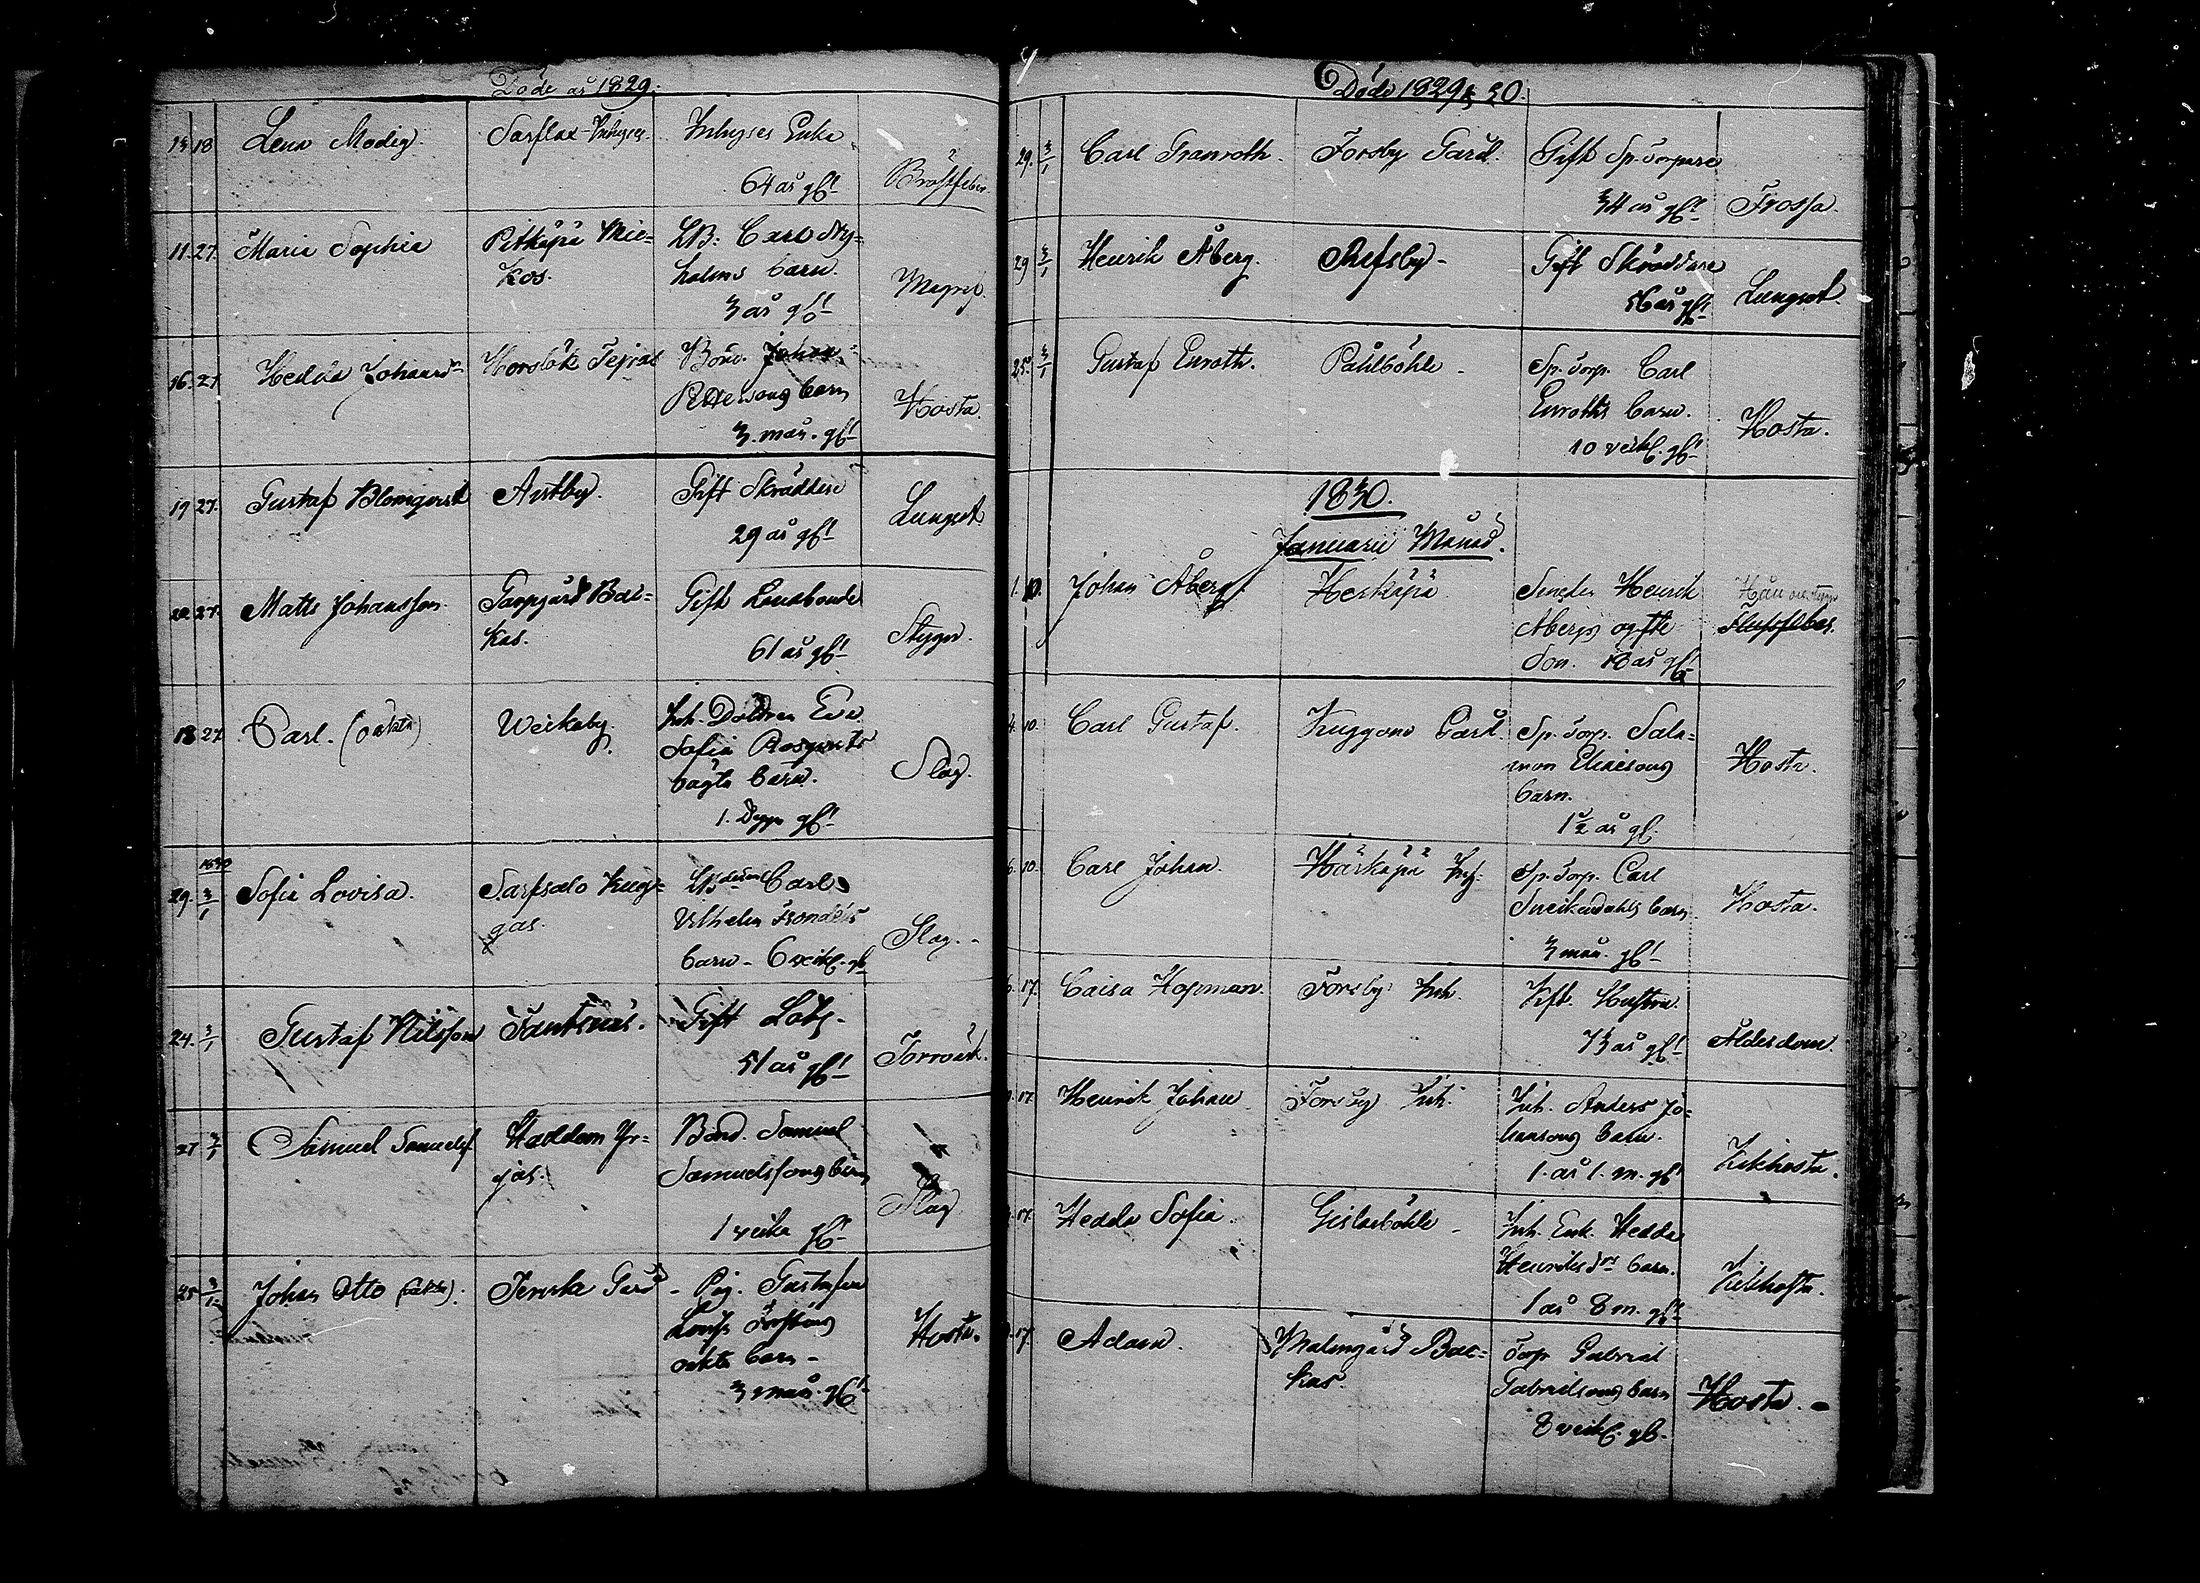 Döde år 1829.
13 18 Lena Modig. Sarflax Inhyses. Inhyses Enka
64 år gl. Bröstfeber
11. 27. Maria Sophia Pitkäpä Mic=
kos. LB: Carl Ny=
holms barn.
3 år gl. Magref.
16. 27. Hedda Johansdr Horslök Tejras Bond.
Pettersons barn
3. mån. gl. Hosta.
19 27. Gustaf Blomqvist Antby. Gift Skräddare
29 år gl. Lungsot
27. Matts Johansson. Bac=
kas. Gift Landbonde
61 år gl. Stygn.
18 27. Carl. (oäkta) Weckoby. Inh. Dottren Eva
Sofia Rosqvists
oägta barn.
1. Dygn gl. Slag.
1830
29. 3/1 Sofia Lovisa. Sarfsalo Kug=
gas. Carl
Vilhelm
barn - 6 veck. gl. Slag. -
24. 3/1 Gustaf Nilsson Fantsnäs. Gift Lots.
51 år gl. Torrvärk.
27 3/1 Samuel Samuelsf. Haddom Yr=
jas. Bond. Samuel
Samuelssons barn
1 vecka gl. Slag
25 3/1 Johan Otto (oäkta). Jerns Gård - Pig. Gustafva
oäkta barn -
3 mån. gl. Hosta.
Döde 1829 & 30.
29. 3/1 Carl Granroth. Forsby Gård. Gift Sp. Torpare
34 år gl. Frossa.
29 3/1 Henrik Åberg. Gift Skräddare
56 år gl. Lungsot.
25. 3/1 Gustaf Enroth. Påhlböhle - Sp. Torp. Carl
Enroths barn.
10 veck. gl. Hosta.
1830.
Januarii Månad.
1. 10. Johan Åberg. Herkäpä Henrik
Åbergs ogifte
Son. 18 år gl.
4. 10. Carl Gustaf. Kuggom Gård. Sp. Torp. Salo=
mon Eliaesons
barn.
1 1/2 år gl. Hosta.
6. 10. Carl Johan. Härkäpä Inh. Sp. Torp. Carl
barn
3 mån. gl. Hosta.
17. Caisa Hopman. Forsby Inh. Gift Hustru.
73 år gl. Ålderdom.
17. Henrik Johan Forsby Inh. Inh. Anders Jo=
hansons barn.
1. år 1. m. gl. Kikhosta.
17. Hedda Sofia. Gislarböhle - Inh. Enk. Hedda
Henriksdr barn.
1 år 8 m. gl. Kikhosta.
17. Adam. Malmgård Bac=
kas. Torp Gabriel
Gabrielsons barn
8 veck. gl. Hosta. -